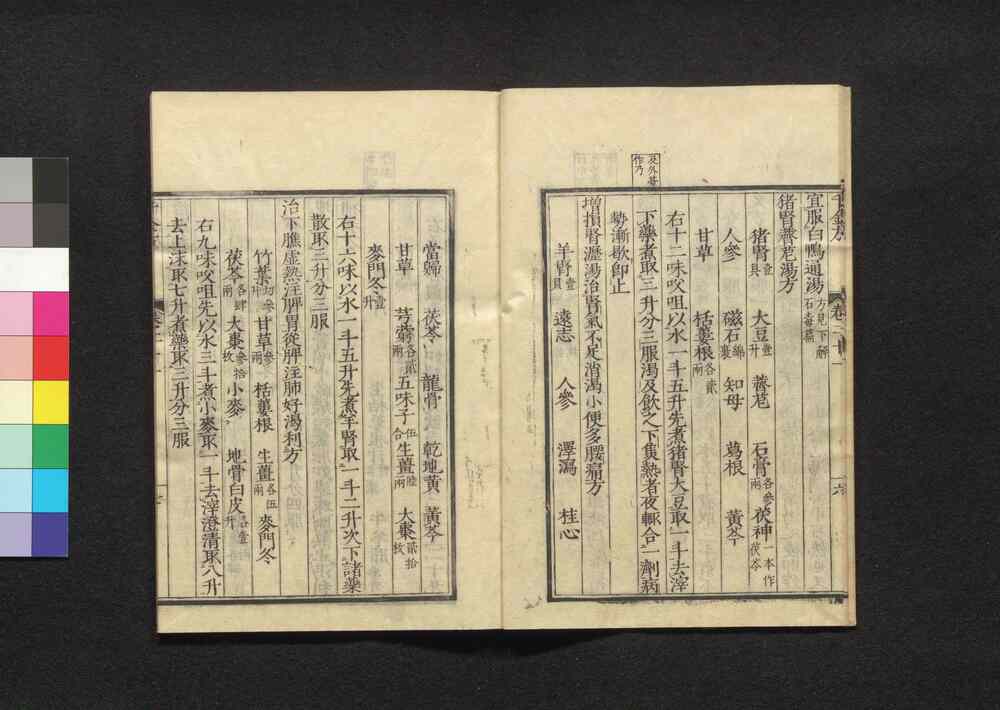 千金方
卷二十一
六
宜服白鴨通湯方見下解石毒篇
猪腎薺苨湯方
猪腎壹具 大豆壹升 薺苨 石膏各參兩 茯神一本作茯苓
人參 磁石綿裹 知母 葛根 黃芩
甘草 栝樓根各貳兩
右十二味㕮咀以水一斗五升先煮猪腎大豆取一斗去滓
下藥煮取三升分三服湯及飲之下焦熱者夜輒合一劑病
勢漸歇即止
及外臺作乃
增損腎瀝湯治腎氣不足消渴小便多腰痛方
羊腎壹具 遠志 人參 澤瀉 桂心
當歸 茯苓 龍骨 乾地黃 黃芩
甘草 芎藭各貳兩 五味子伍合 生薑陸兩 大棗貳拾枚
麥門冬壹升
右十六味以水一斗五升先煮羊腎取一斗二升次下諸藥
散取三升分三服
治下膲虛熱注脾胃從脾注肺好渴利方
竹葉切參升 甘草參兩 栝樓根 生薑各伍兩 麥門冬
茯苓各肆兩 大棗參拾枚 小麥 地骨白皮各壹升
右九味㕮咀先以水三斗煮小麥取一斗去滓澄清取八升
去上沫取七升煮藥取三升分三服